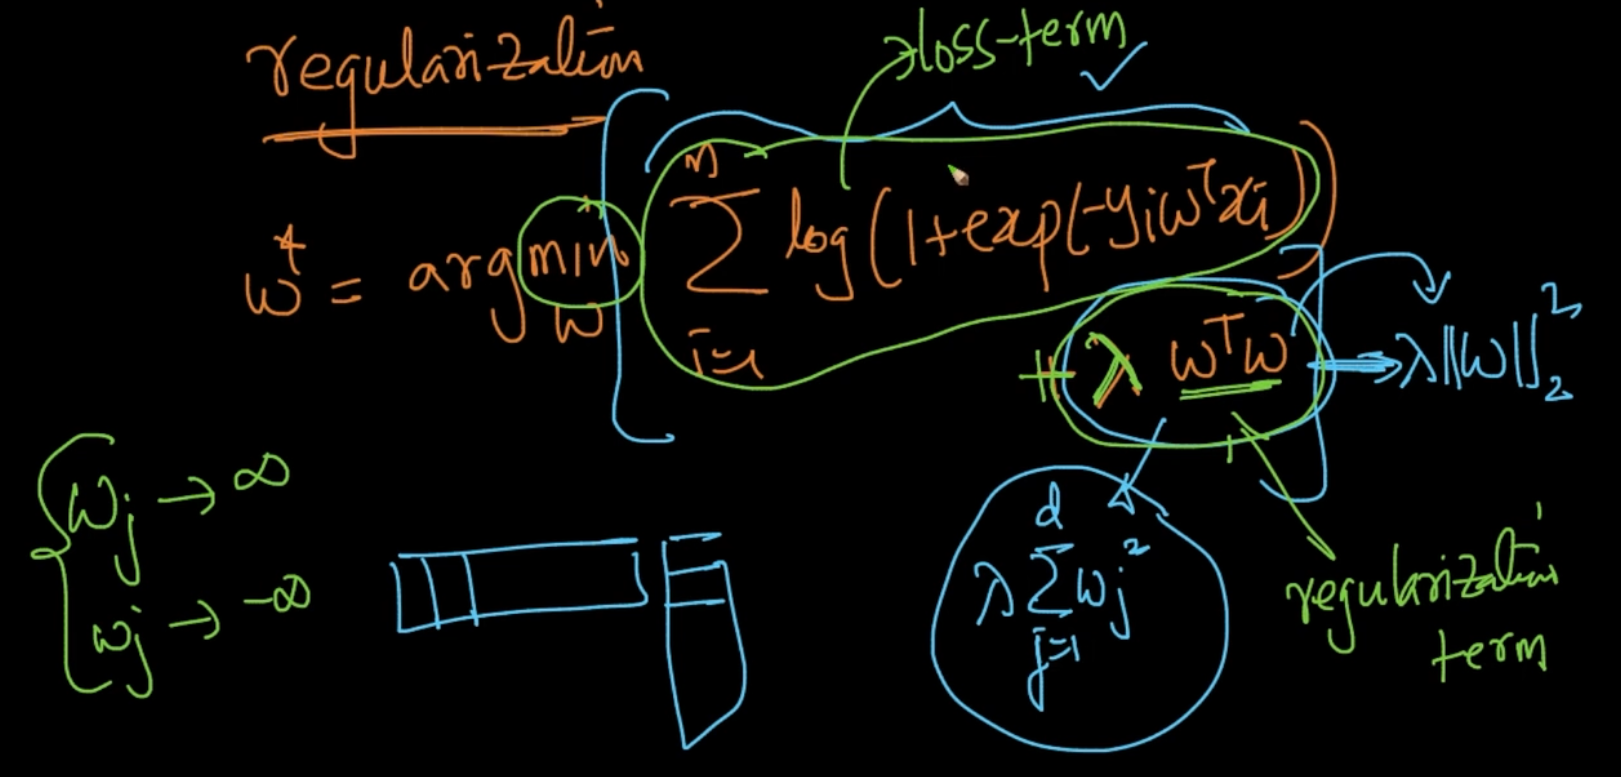 regularization
loss-term
w* = arg min w ∑ i=1 n log(1+exp(-yiwᵀxi))
+ λ wᵀw → λ||w||₂²
wj → ∞
wj → -∞
λ ∑ j=1 d wj²
regularization
term